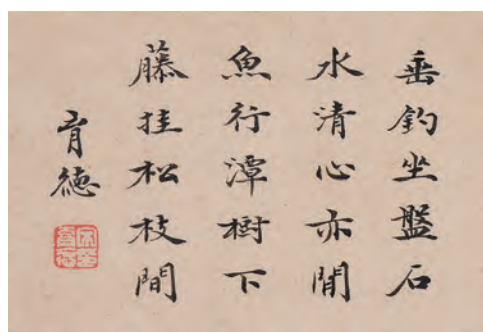 垂釣坐盤石
水清心亦閒
魚行潭樹下
藤挂松枝間
育德